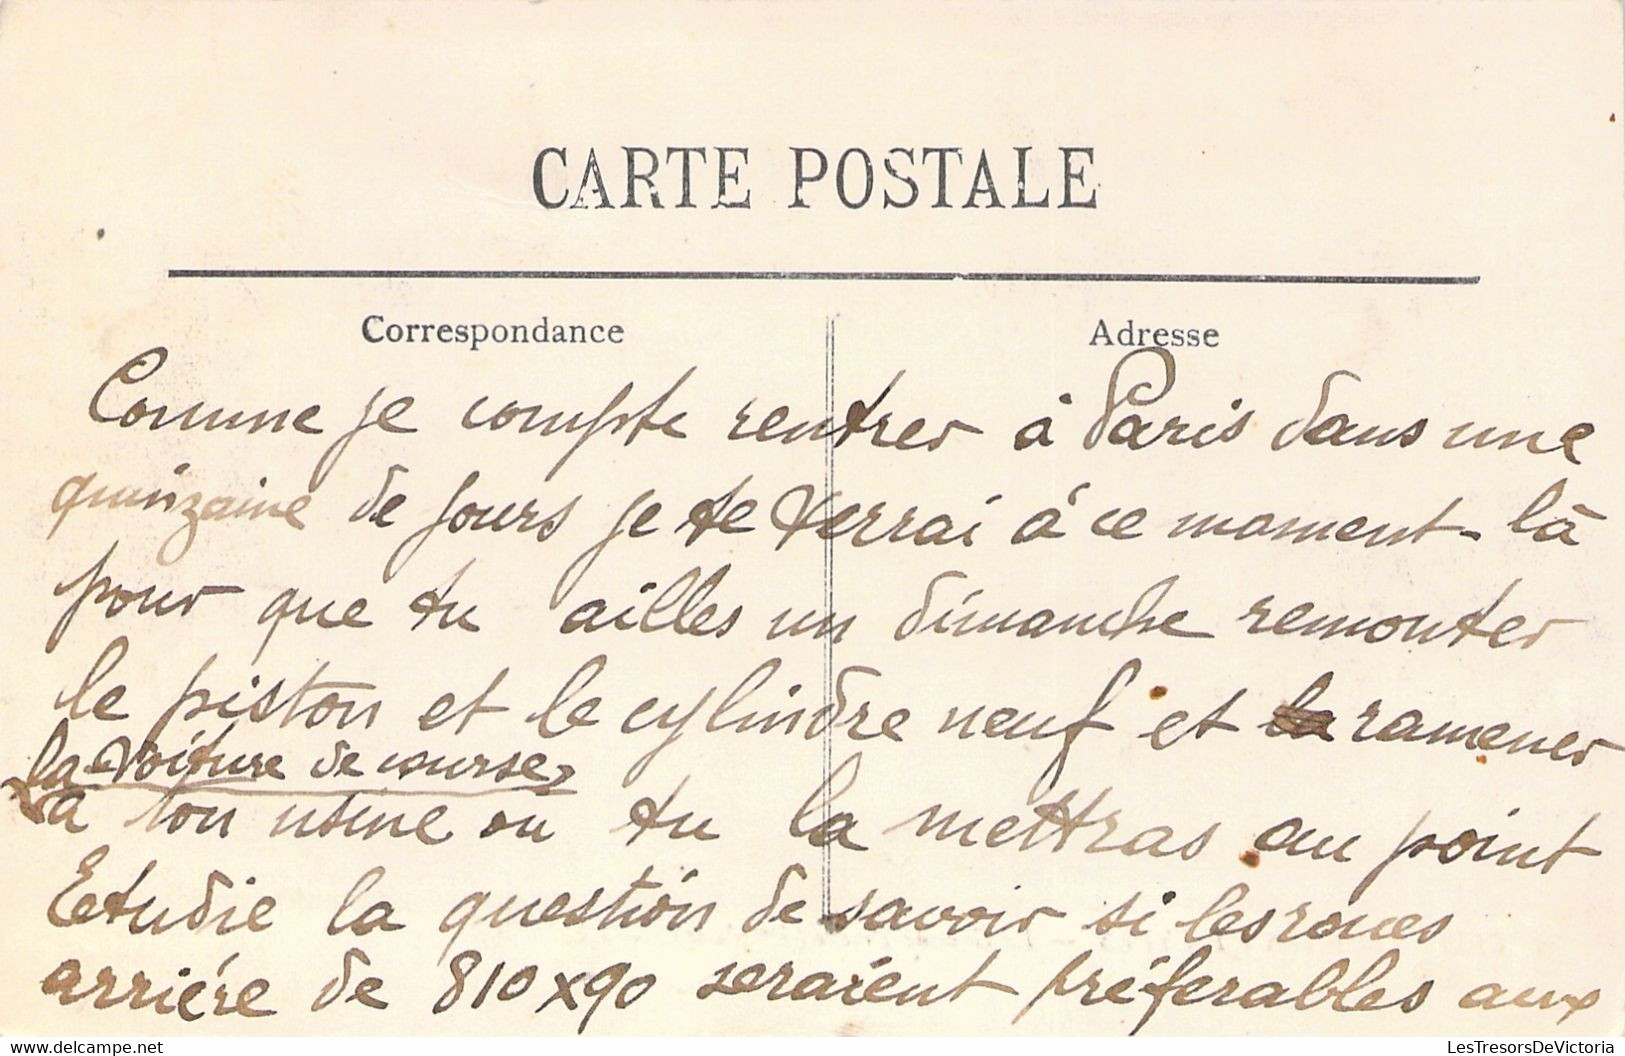 CARTE POSTALE
Correspondance
Adresse
Comme je compte rentrer à Paris dans une
quinzaine de jours je te verrai à ce moment-là
pour que tu ailles un dimanche remonter
le piston et le cylindre neuf et la ramener
la voiture de course,
à ton usine où tu la mettras au point
Etudie la question de savoir si les roues
arrière de 810x90 seraient préférables aux
delcampe.net
LesTresorsDeVictoria